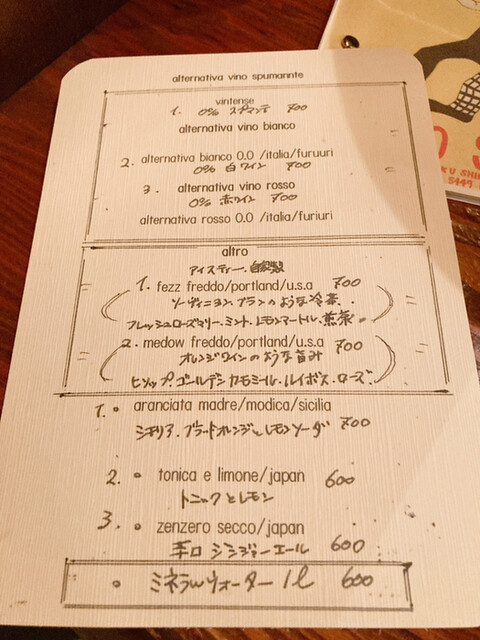 alternativa vino spumannte
vintense
1. 0% スプマンテ 700
alternativa vino bianco
2. alternativa bianco 0.0 /italia/furuuri
0% 白ワイン 700
3. alternativa vino rosso
0% 赤ワイン 700
alternativa rosso 0.0 /italia/furiuri
altro
アイスティー.自家製
1. fezz freddo/portland/u.s.a 700
ソーヴィニヨンブランのような冷茶.
フレッシュローズマリー.ミント.レモンマートル.煎茶.
2. medow freddo/portland/u.s.a 700
オレンジワインのような旨み
ヒソップ.ゴールデンカモミール.ルイボス.ローズ.
1. aranciata madre/modica/sicilia
シチリア.ブラッドオレンジとレモンソーダ 700
2. tonica e limone/japan 600
トニックとレモン
3. zenzero secco/japan
辛口 ジンジャーエール 600
ミネラルウォーター 1ℓ 600
KU SHI
5447